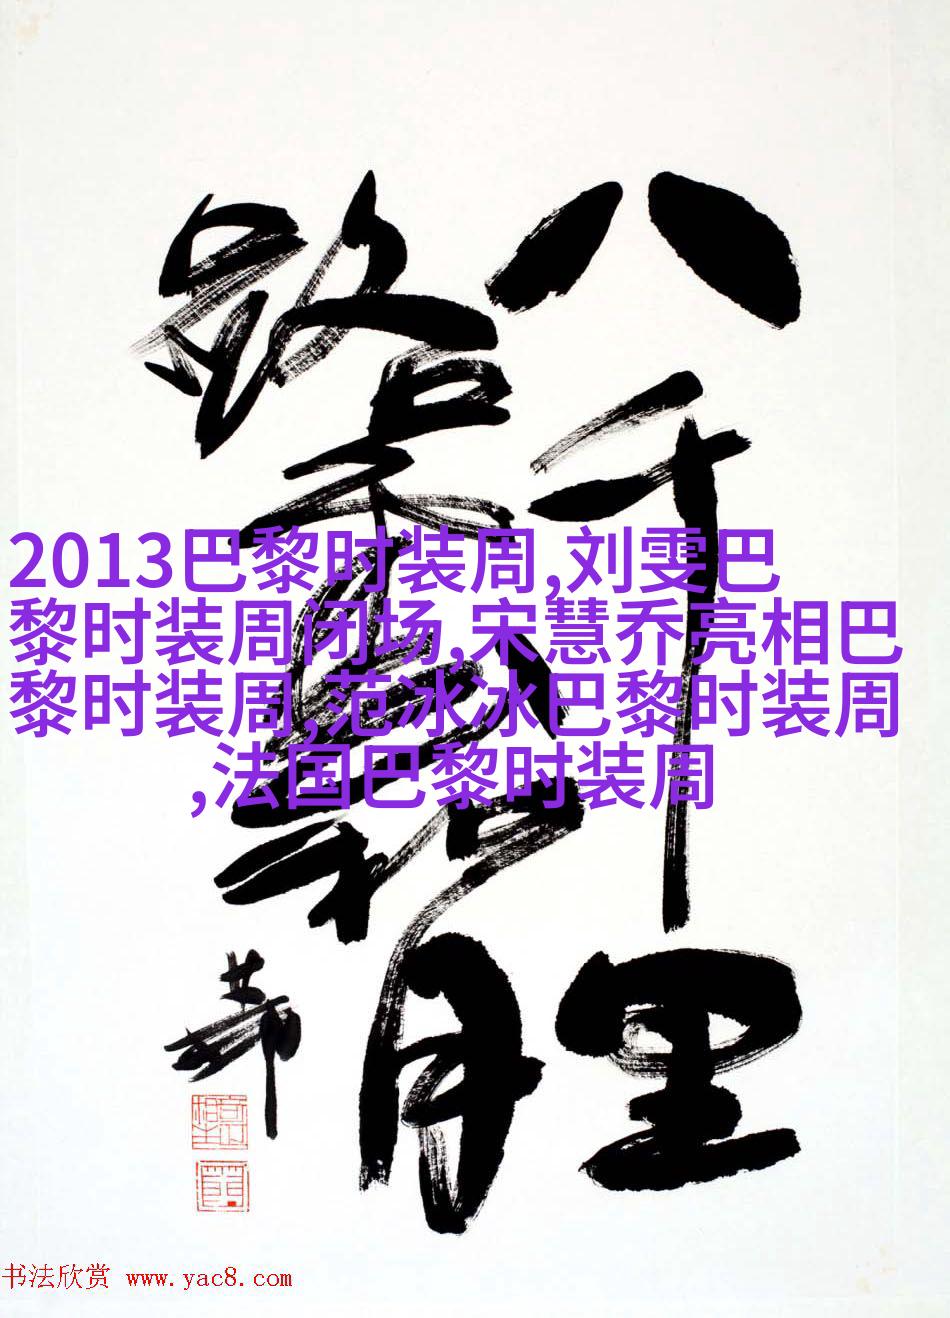 八千里
路雲和月
2013巴黎时装周,刘雯巴
黎时装周闭场,宋慧乔亮相巴
黎时装周,范冰冰巴黎时装周
,法国巴黎时装周
书法欣赏 www.yac8.com